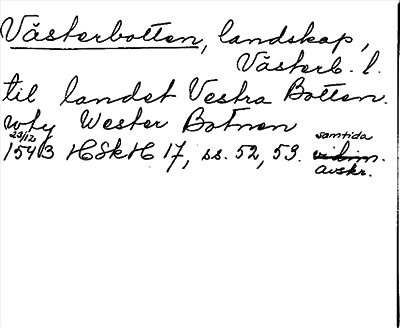 Västerbotten, landskap,
Västerb. l.
til landet Vestra Botten.
vthj Wester Botnen
23/12 1543 HSkH 17, ss. 52, 53. samtida
avskr.